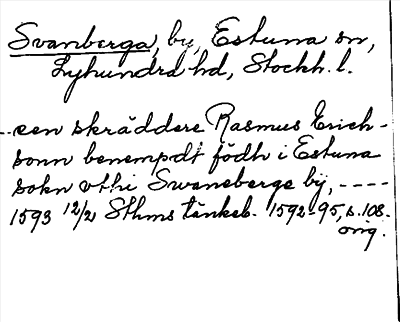 Svanberga, by, Estuna sn,
Lyhundra hd, Stockh. l.
--een skräddere Rasmus Erich-
sonn benempdt födh i Estuna
sokn vthi Swaneberge bÿ, ----
1593 12/2 Sthms tänkeb. 1592-95, s. 108.
orig.